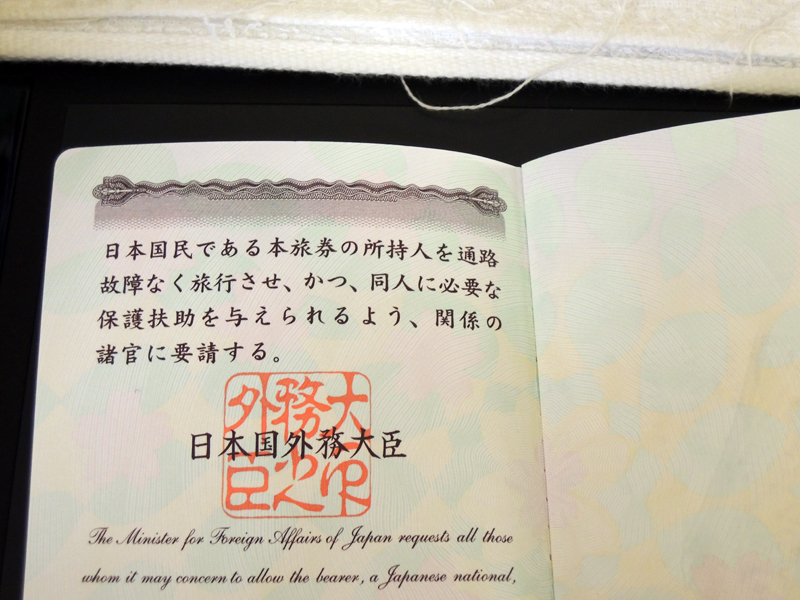 日本国民である本旅券の所持人を通路
故障なく旅行させ、かつ、同人に必要な
保護扶助を与えられるよう、関係の
諸官に要請する。
日本国外務大臣
The Minister for Foreign Affairs of Japan requests all those
whom it may concern to allow the bearer, a Japanese national,